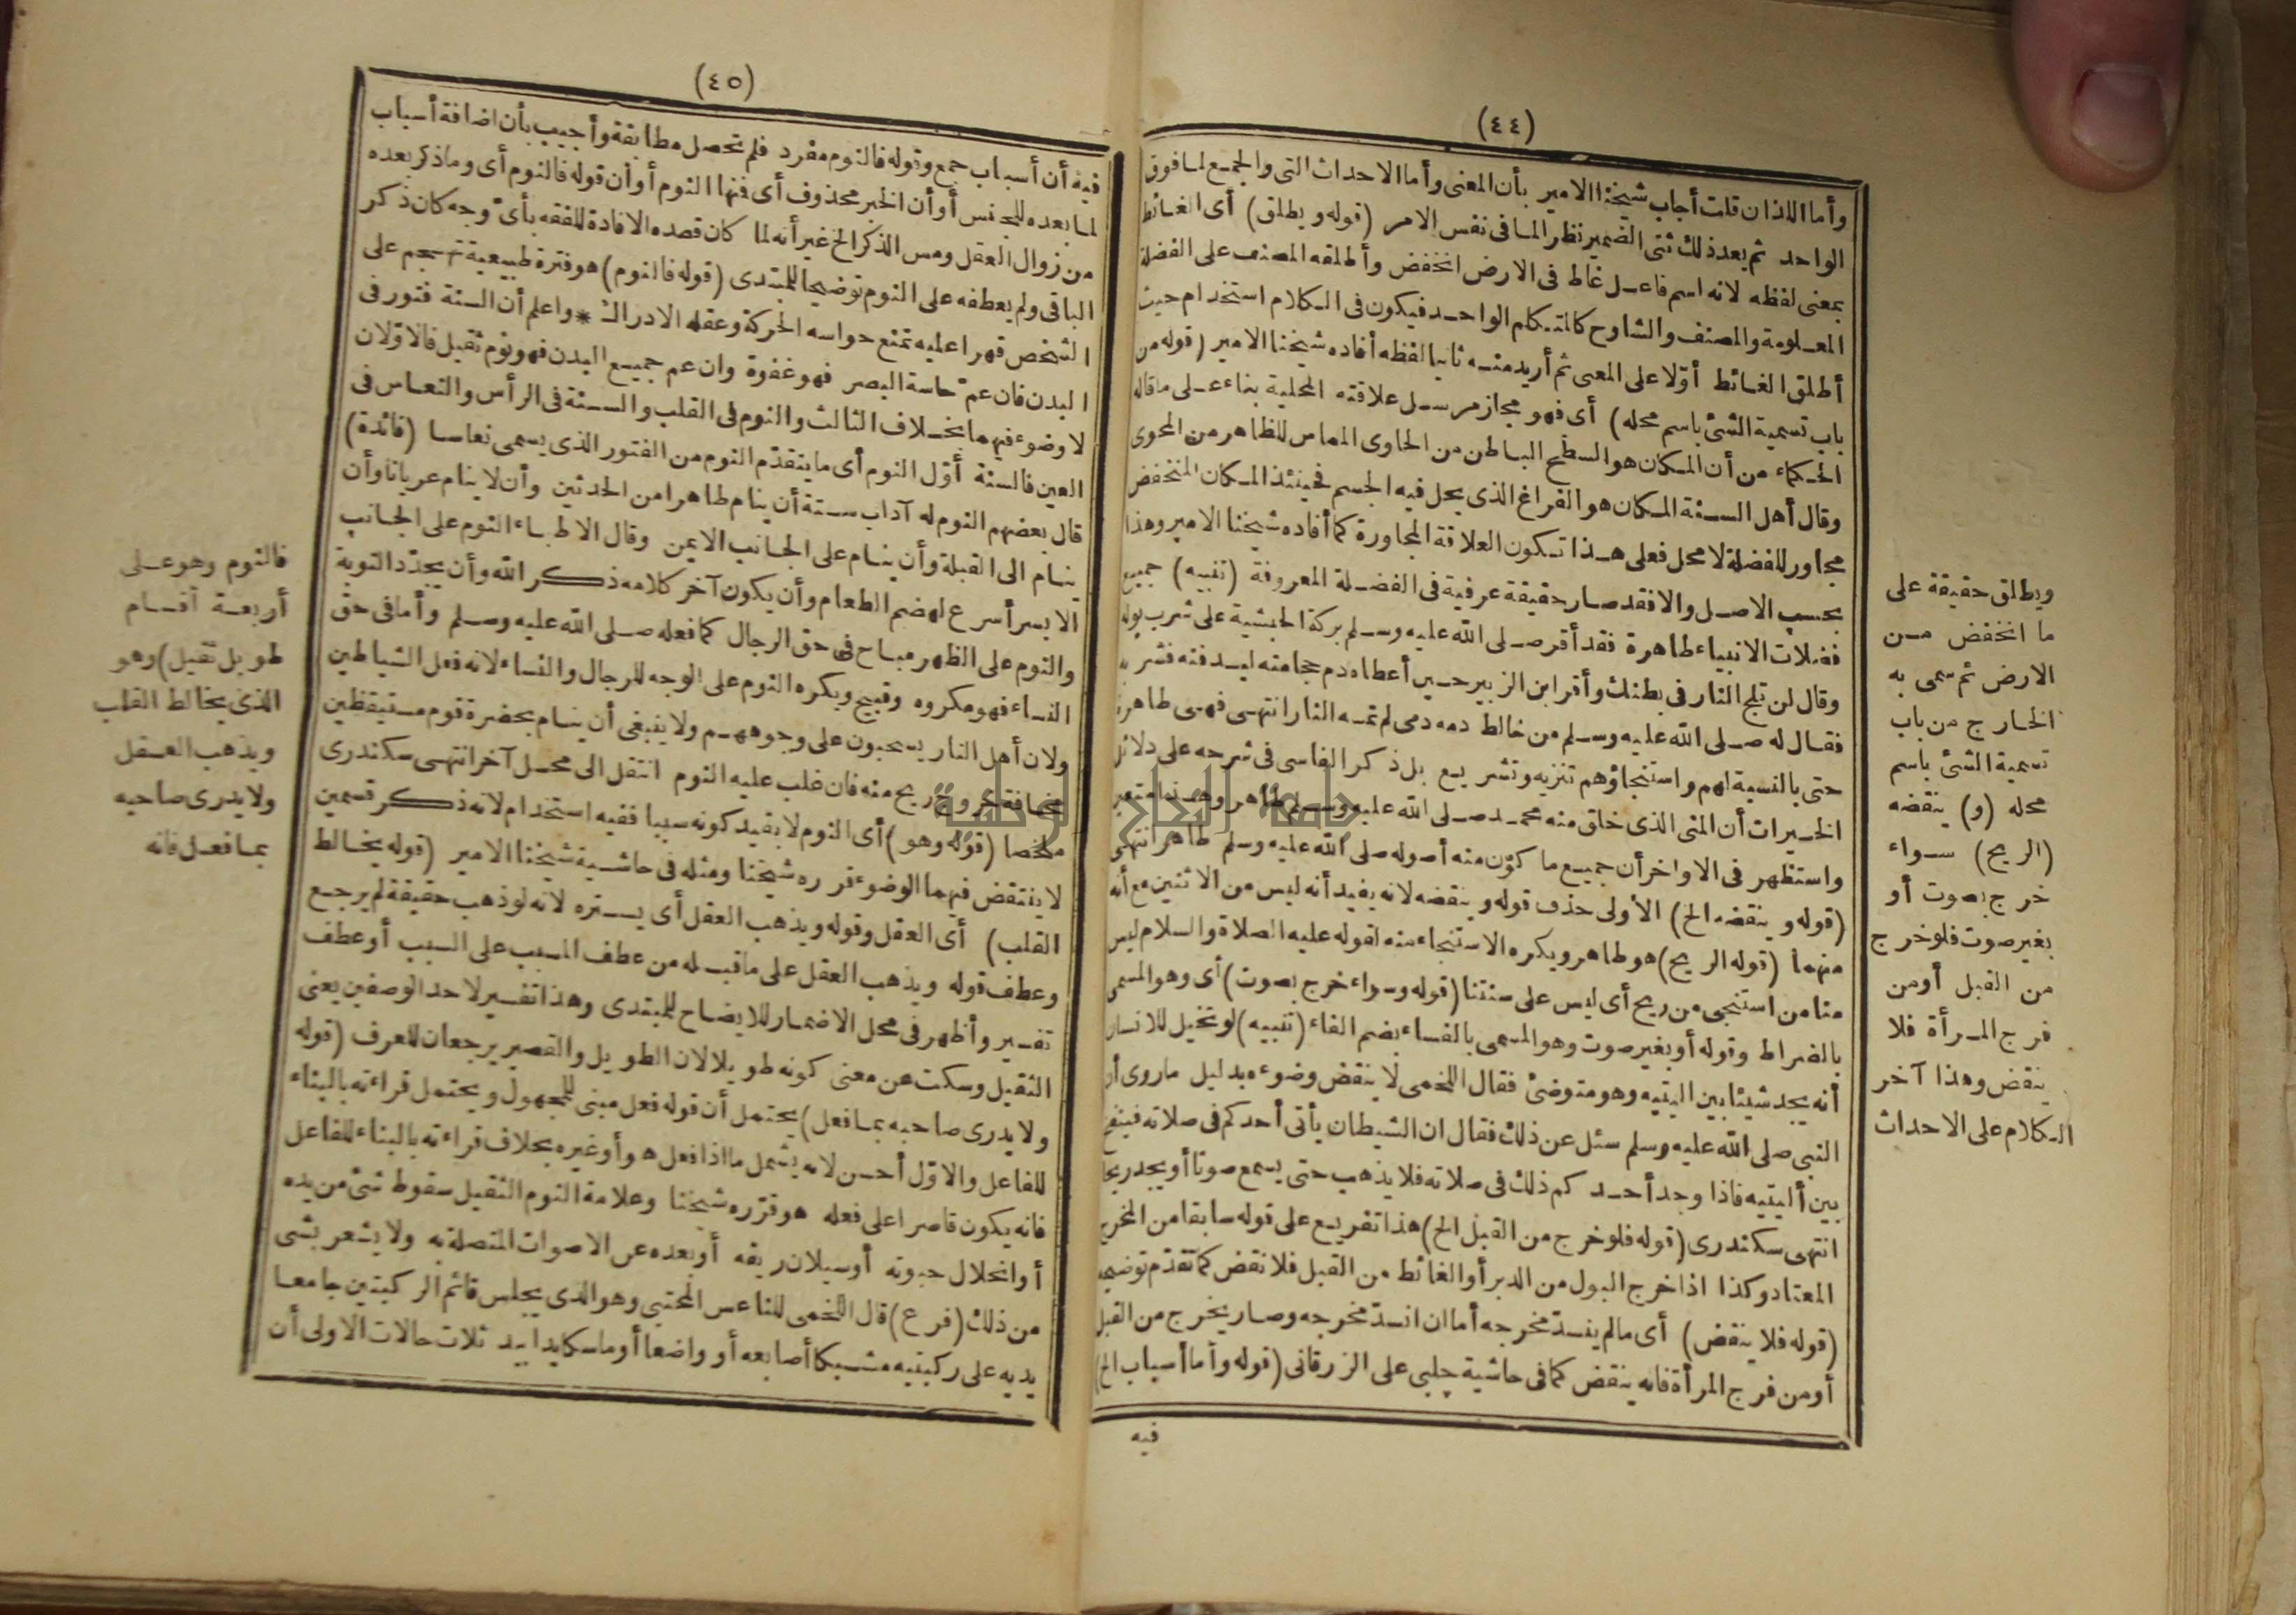 (٤٤)
وأما اللذان قلت أجاب شيخنا الامير بأن المعنى وأما الاحداث التى والجمع لما فوق
الواحد ثم بعد ذلك ثنى الضمير نظر الما فى نفس الامر (قوله ويطلق) أى الغائط
بمعنى لفظه لانه اسم فاعل غاط فى الارض انخفض وأطلقه المصنف على الفضلة
المعلومة والمصنف والشارح كالمتكلم الواحد فيكون فى الكلام استخدام حيث
أطلق الغائط أوّلا على المعنى ثم أريد منه ثانيا لفظه أفاده شيخنا الامير (قوله من
باب تسمية الشئ باسم محله) أى فهو مجاز مرسل علاقته المحلية بناء على ما قاله
الحكماء من أن المكان هو السطح الباطن من الحاوى المماس للظاهر من المحوى
وقال أهل السنة المكان هو الفراغ الذى يحل فيه الجسم فحينئذ المكان المنخفض
مجاور للفضلة لا محل فعلى هذا تكون العلاقة المجاورة كما أفاده شيخنا الامير وهذا
بحسب الاصل والا فقد صار حقيقة عرفية فى الفضلة المعروفة (تنبيه) جميع
فضلات الانبياء طاهرة فقد أقر صلى الله عليه وسلم بركة الحبشية على شرب بوله
وقال لن تلج النار فى بطنك وأقر ابن الزبير حين أعطاه دم حجامته ليدفنه فشربه
فقال له صلى الله عليه وسلم من خالط دمه دمى لم تمسه النار انتهى فهى طاهرة
حتى بالنسبة لهم واستنجاؤهم تنزيه وتشريع بل ذكر الفاسى فى شرحه على دلائل
الخيرات أن المنى الذى خلق منه محمد صلى الله عليه وسلم طاهر وهذا متعين
واستظهر فى الاواخر أن جميع ما كوّن منه أصوله صلى الله عليه وسلم طاهر انتهى
(قوله وينقضه الخ) الأولى حذف قوله وينقضه لانه يفيد أنه ليس من الاثنين مع أنه
منهما (قوله الريح) هو طاهر ويكره الاستنجاء منه لقوله عليه الصلاة والسلام ليس
منا من استنجى من ريح أى ليس على سنتنا (قوله وسواء خرج بصوت) أى وهو المسمى
بالضراط وقوله أو بغير صوت وهو المسمى بالفساء بضم الفاء (تنبيه) لو تخيل للانسان
أنه يجد شيئا بين اليتيه وهو متوضئ فقال اللخمى لا ينقض وضوءه بدليل ما روى أن
النبى صلى الله عليه وسلم سئل عن ذلك فقال ان الشيطان يأتى أحدكم فى صلاته فينفخ
بين أليتيه فاذا وجد أحدكم ذلك فى صلاته فلا يذهب حتى يسمع صوتا أو يجد ريحا
انتهى سكندرى (قوله فلو خرج من القبل الخ) هذا تفريع على قوله سابقا من المخرج
المعتاد وكذا اذا خرج البول من الدبر أو الغائط من القبل فلا نقض كما تقدّم توضيحه
(قوله فلا ينقض) أى ما لم ينسدّ مخرجه أما ان انسدّ مخرجه وصار يخرج من القبل
أو من فرج المرأة فانه ينقض كما فى حاشية چلبى على الزرقانى (قوله وأما أسباب الخ)
فيه
ويطلق حقيقة على
ما انخفض من
الارض ثم سمى به
الخارج من باب
تسمية الشئ باسم
محله (و) ينقضه
(الريح) سواء
خرج بصوت أو
بغير صوت فلو خرج
من القبل أو من
فرج المرأة فلا
ينقض وهذا آخر
الكلام على الاحداث
(٤٥)
فيه أن أسباب جمع وقوله فالنوم مفرد فلم تحصل مطابقة وأجيب بأن اضافة أسباب
لما بعده للجنس أو أن الخبر محذوف أى فمنها النوم أو أن قوله فالنوم أى وما ذكر بعده
من زوال العقل ومس الذكر الخ غير أنه لما كان قصده الافادة للفقه بأىّ وجه كان ذكر
الباقى ولم يعطفه على النوم توضيحا للمبتدى (قوله فالنوم) هو فترة طبيعية تهجم على
الشخص قهرا عليه تمنع حواسه الحركة وعقله الادراك * واعلم أن السنة فتور فى
البدن فان عمّ حاسة البصر فهو غفوة وان عم جميع البدن فهو نوم ثقيل فالاوّلان
لا وضوء فيهما بخلاف الثالث والنوم فى القلب والسنة فى الرأس والنعاس فى
العين فالسنة أوّل النوم أى ما يتقدّم النوم من الفتور الذى يسمى نعاسا (فائدة)
قال بعضهم النوم له آداب ستة أن ينام طاهرا من الحدثين وأن لا ينام عريانا وأن
ينام الى القبلة وأن ينام على الجانب الايمن وقال الاطباء النوم على الجانب
الايسر أسرع لهضم الطعام وأن يكون آخر كلامه ذكر الله وأن يجدّد التوبة
والنوم على الظهر مباح فى حق الرجال كما فعله صلى الله عليه وسلم وأما فى حق
النساء فهو مكروه وقبيح ويكره النوم على الوجه للرجال والنساء لانه فعل الشياطين
ولان أهل النار يسحبون على وجوههم ولا ينبغى أن ينام بحضرة قوم مستيقظين
مخافة خروج ريح منه فان غلب عليه النوم انتقل الى محل آخر انتهى سكندرى
ملخصا (قوله وهو) أى النوم لا بقيد كونه سببا ففيه استخدام لانه ذكر قسمين
لا ينتقض فيهما الوضوء قرره شيخنا ومثله فى حاشية شيخنا الامير (قوله يخالط
القلب) أى العقل وقوله ويذهب العقل أى يستره لانه لو ذهب حقيقة لم يرجع
وعطف قوله ويذهب العقل على ما قبله من عطف المسبب على السبب أو عطف
تفسير وأظهر فى محل الاضمار للايضاح للمبتدى وهذا تفسير لاحد الوصفين يعنى
الثقيل وسكت عن معنى كونه طويلا لان الطويل والقصير يرجعان للعرف (قوله
ولا يدرى صاحبه بما فعل) يحتمل أن قوله فعل مبنى للمجهول ويحتمل قراءته بالبناء
للفاعل والاوّل أحسن لانه يشمل ما اذا فعل هو أو غيره بخلاف قراءته بالبناء للفاعل
فانه يكون قاصرا على فعله هو قرّره شيخنا وعلامة النوم الثقيل سقوط شئ من يده
أو انحلال حبوته أو سيلان ريقه أو بعده عن الاصوات المتصلة به ولا يشعر بشى
من ذلك (فرع) قال اللخمى للناعس المحتبى وهو الذى يجلس قائم الركبتين جامعا
يديه على ركبتيه مشبكا أصابعه أو واضعا أو ماسكا يدا بيد ثلاث حالات الاولى أن
فالنوم وهو على
أربعة أقسام
طويل ثقيل) وهو
الذى يخالط القلب
ويذهب العقل
ولا يدرى صاحبه
بما فعل فانه
جامعة النجاح الوطنية